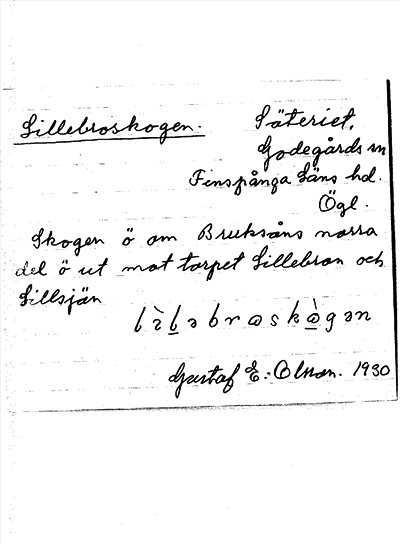 Lillebroskogen. Säteriet,
Godegårds sn
Finspånga läns hd.
Ögl.
Skogen ö om Bruksåns norra
del ö ut mot torpet Lillebron och
Lillsjän
Gustaf E:Olsson. 1930